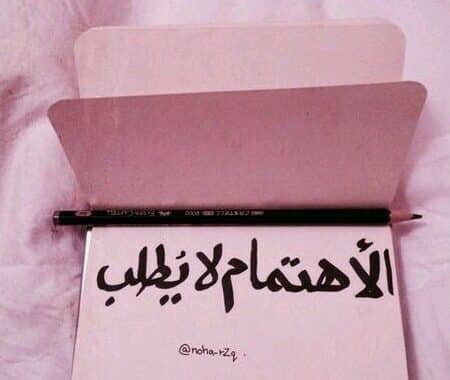 الأهتمام لا يُطلب
@noha-rzq.